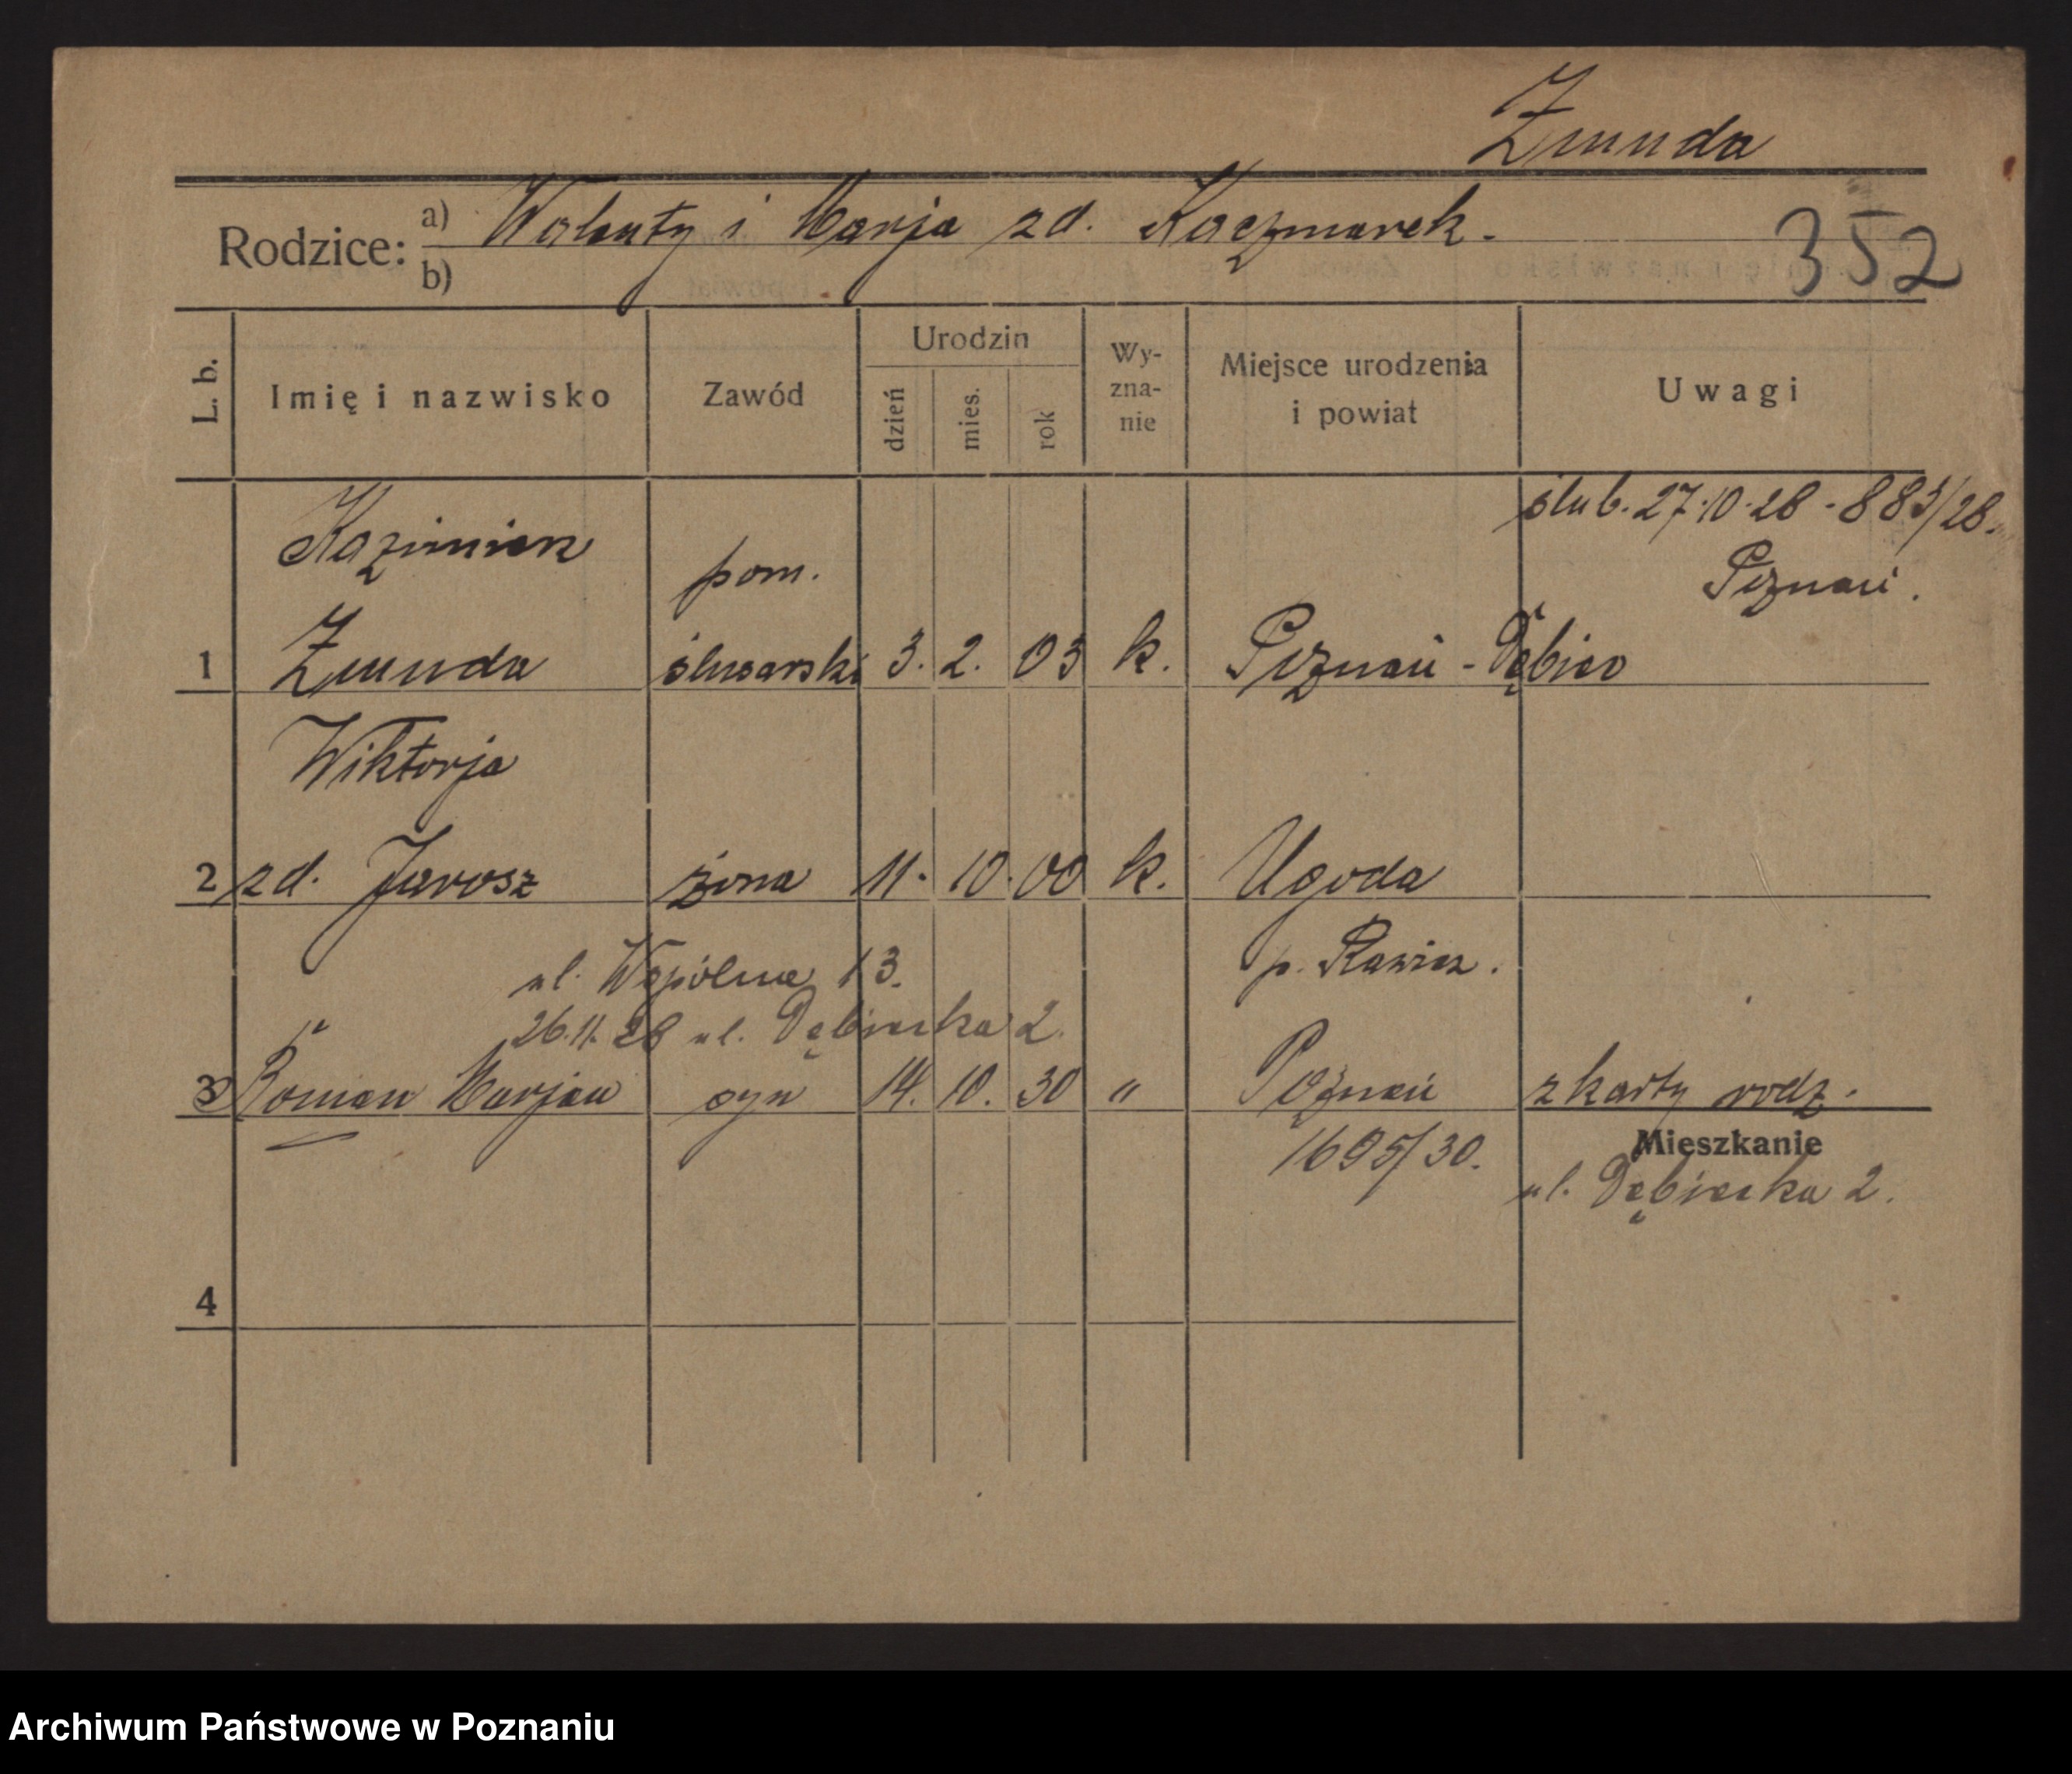 Żmuda
Rodzice: a) Walenty i Marja zd. Kaczmarek.
b)
352
L. b.
Imię i nazwisko
Zawód
Urodzin
dzień
mies.
rok
Wy-
zna-
nie
Miejsce urodzenia
i powiat
Uwagi
ślub. 27.10.28 - 883/28.
Poznań.
Kazimierz
pom.
1 Żmuda ślusarski 3. 2. 03 k. Poznań - Dębiec
Wiktorja
2 zd. Jarosz żona 11. 10. 00 k. Ugoda
p. Rawicz.
ul. Wspólna 13.
26.11.28 ul. Dębiecka 2.
3 Roman Marjan syn 14. 10. 30 " Poznań z karty rodz.
1695/30.
Mieszkanie
ul. Dębiecka 2.
4
Archiwum Państwowe w Poznaniu